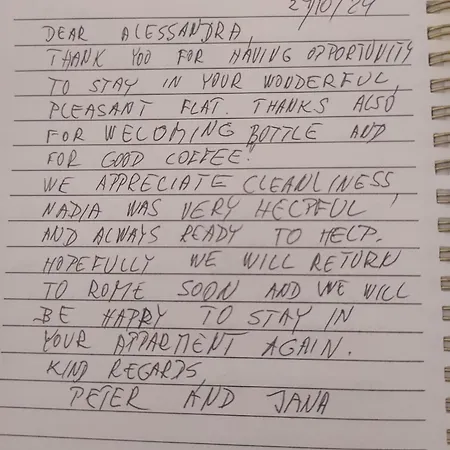 29/10/24
DEAR ALESSANDRA,
THANK YOU FOR HAVING OPPORTUNITY
TO STAY IN YOUR WONDERFUL,
PLEASANT FLAT. THANKS ALSO
FOR WELCOMING BOTTLE AND
FOR GOOD COFFEE!
WE APPRECIATE CLEANLINESS,
NADIA WAS VERY HELPFUL
AND ALWAYS READY TO HELP.
HOPEFULLY WE WILL RETURN
TO ROME SOON AND WE WILL
BE HAPPY TO STAY IN
YOUR APPARMENT AGAIN.
KIND REGARDS,
PETER AND JANA